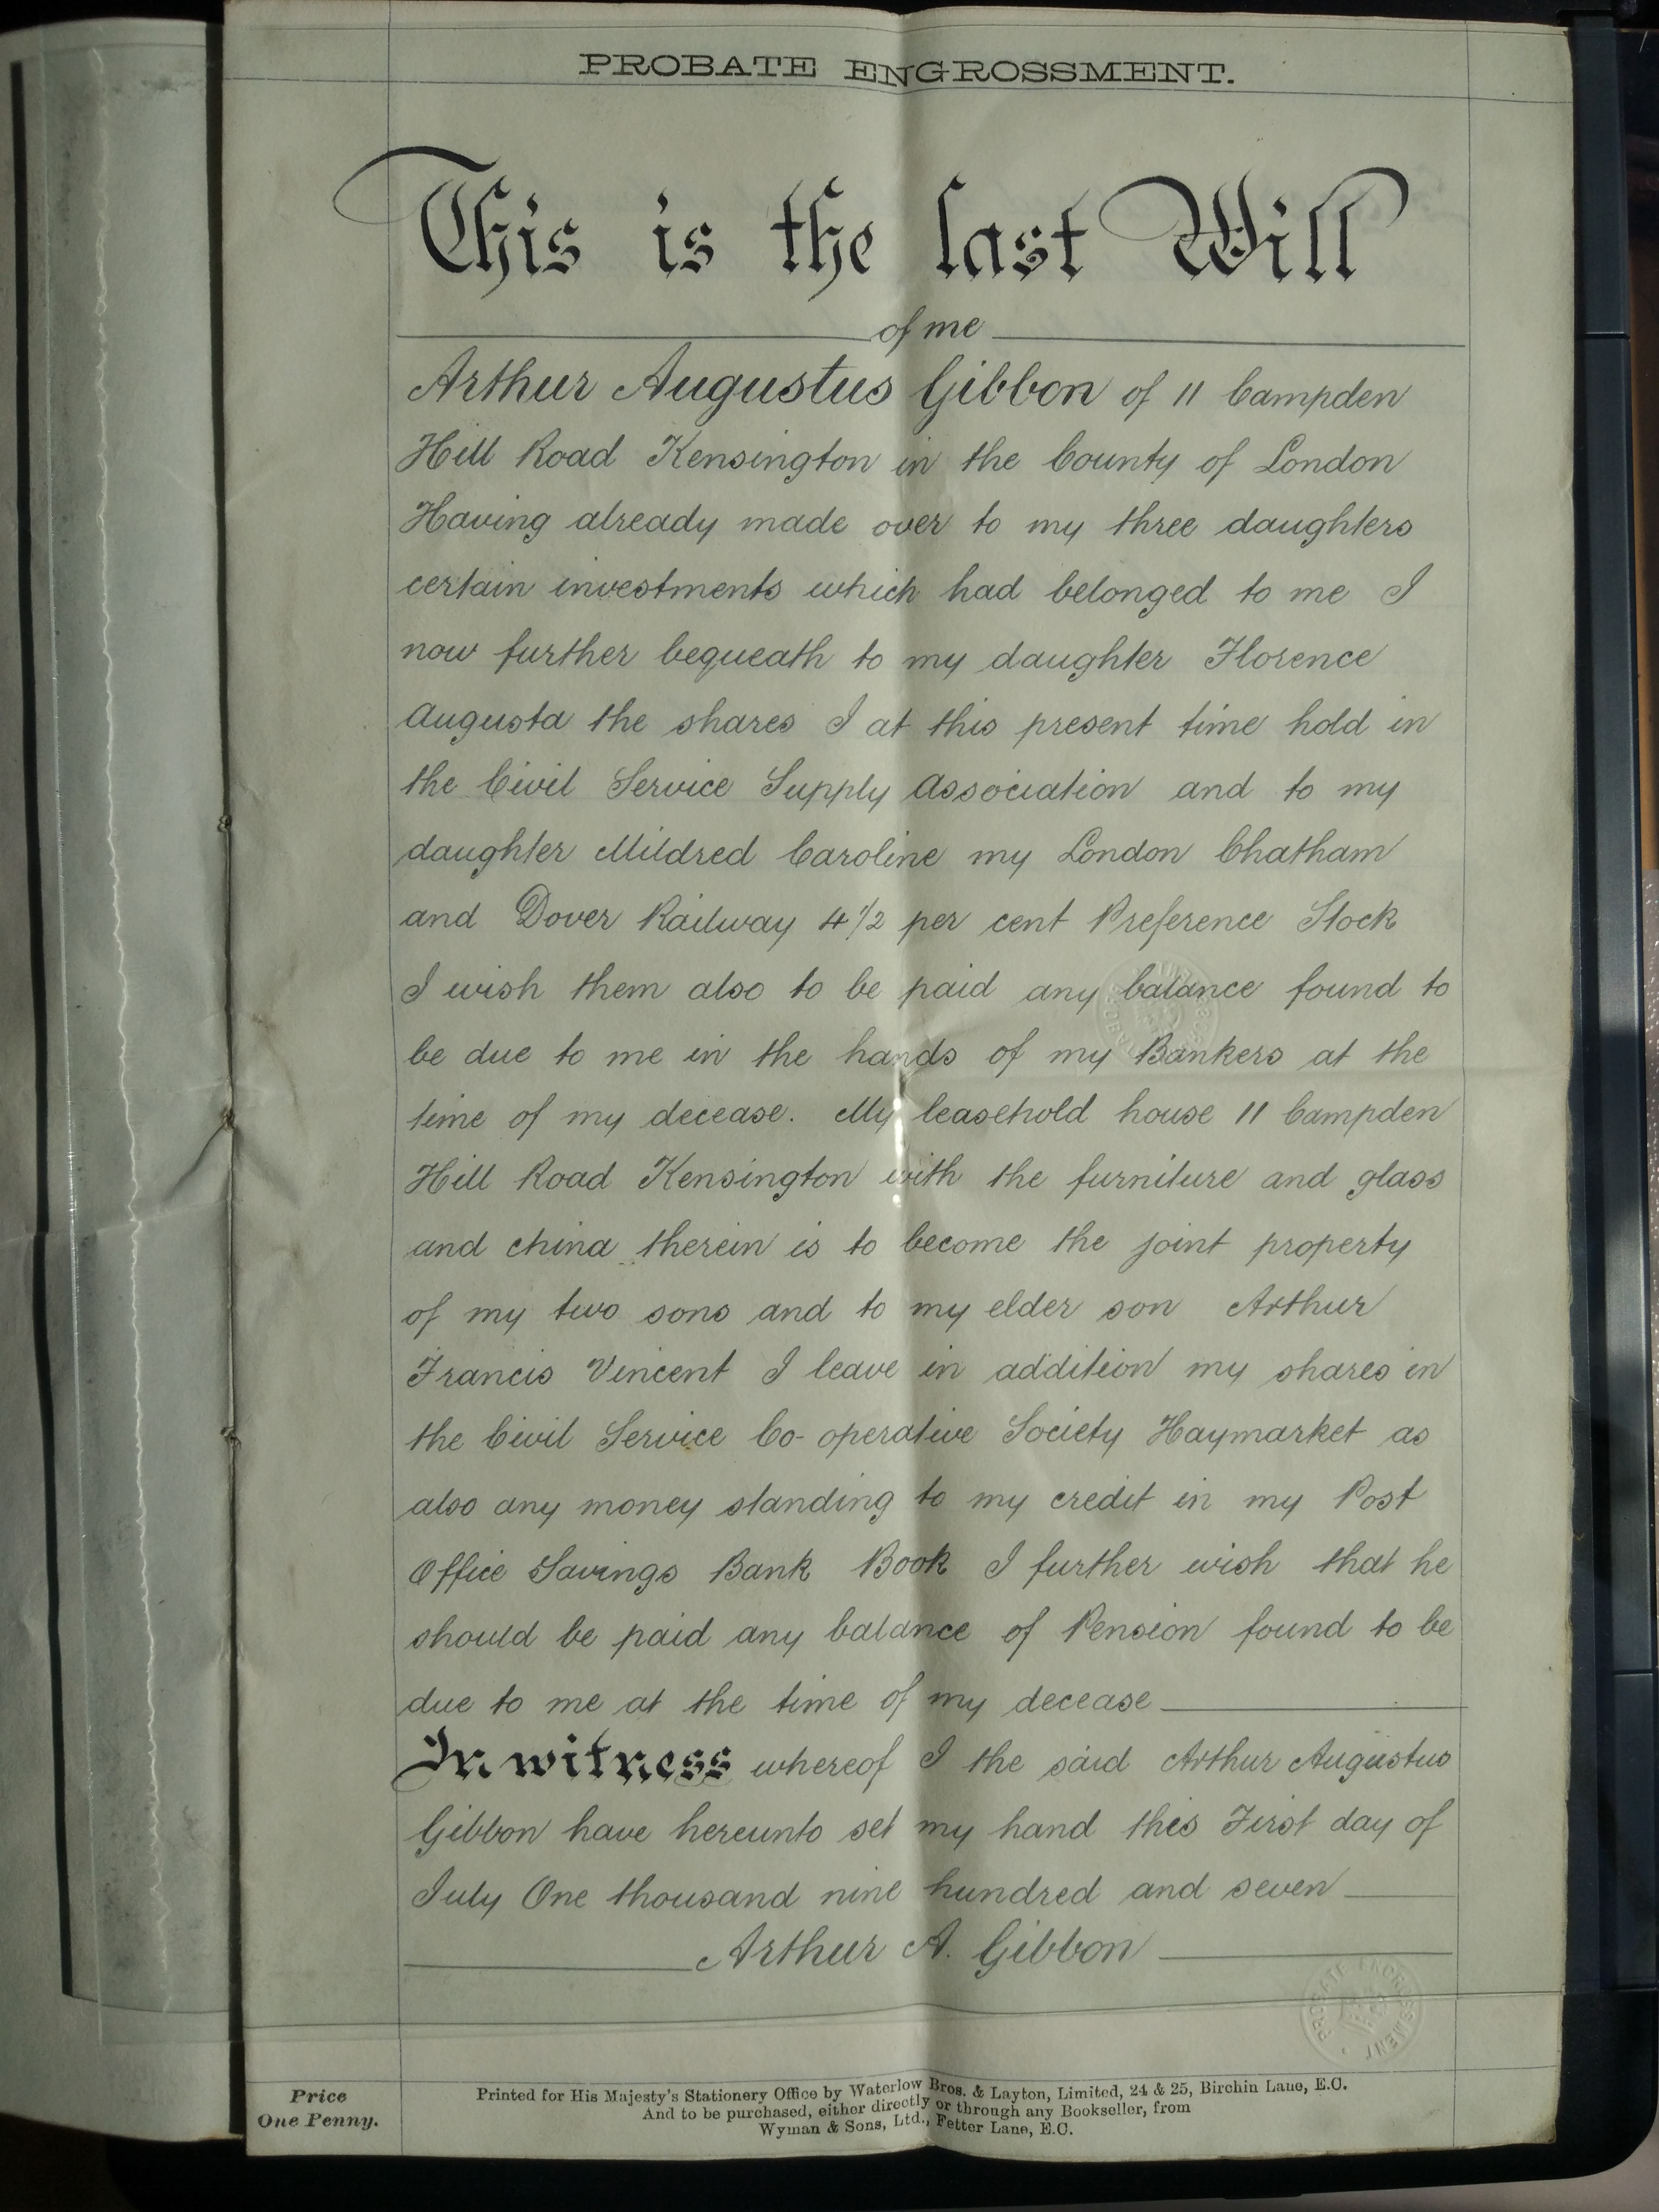 PROBATE ENGROSSMENT.
This is the last Will
of me
Arthur Augustus Gibbon of 11 Campden
Hill Road Kensington in the County of London
Having already made over to my three daughters
certain investments which had belonged to me I
now further bequeath to my daughter Florence
Augusta the shares I at this present time hold in
the Civil Service Supply Association and to my
daughter Mildred Caroline my London Chatham
and Dover Railway 4 1/2 per cent Preference Stock
I wish them also to be paid any balance found to
be due to me in the hands of my Bankers at the
time of my decease. My leasehold house 11 Campden
Hill Road Kensington with the furniture and glass
and china therein is to become the joint property
of my two sons and to my elder son Arthur
Francis Vincent I leave in addition my shares in
the Civil Service Co-operative Society Haymarket as
also any money standing to my credit in my Post
Office Savings Bank Book I further wish that he
should be paid any balance of Pension found to be
due to me at the time of my decease
In witness whereof I the said Arthur Augustus
Gibbon have hereunto set my hand this First day of
July One thousand nine hundred and seven
Arthur A. Gibbon
PROBATE ENGROSSMENT
Price
One Penny.
Printed for His Majesty's Stationery Office by Waterlow Bros. & Layton, Limited, 24 & 25, Birchin Lane, E.C.
And to be purchased, either directly or through any Bookseller, from
Wyman & Sons, Ltd., Fetter Lane, E.C.